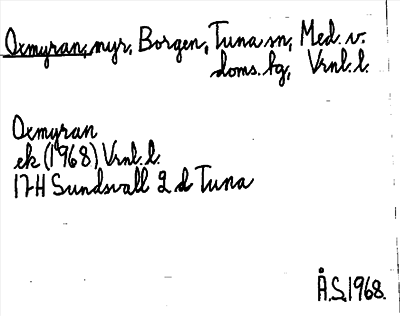 Oxmyran, myr, Borgen, Tuna sn, Med. v.
doms. hg, Vrnl. l.
Oxmyran
ek (1968) Vrnl. l.
17H Sundsvall 2 d Tuna
Å.S. 1968.